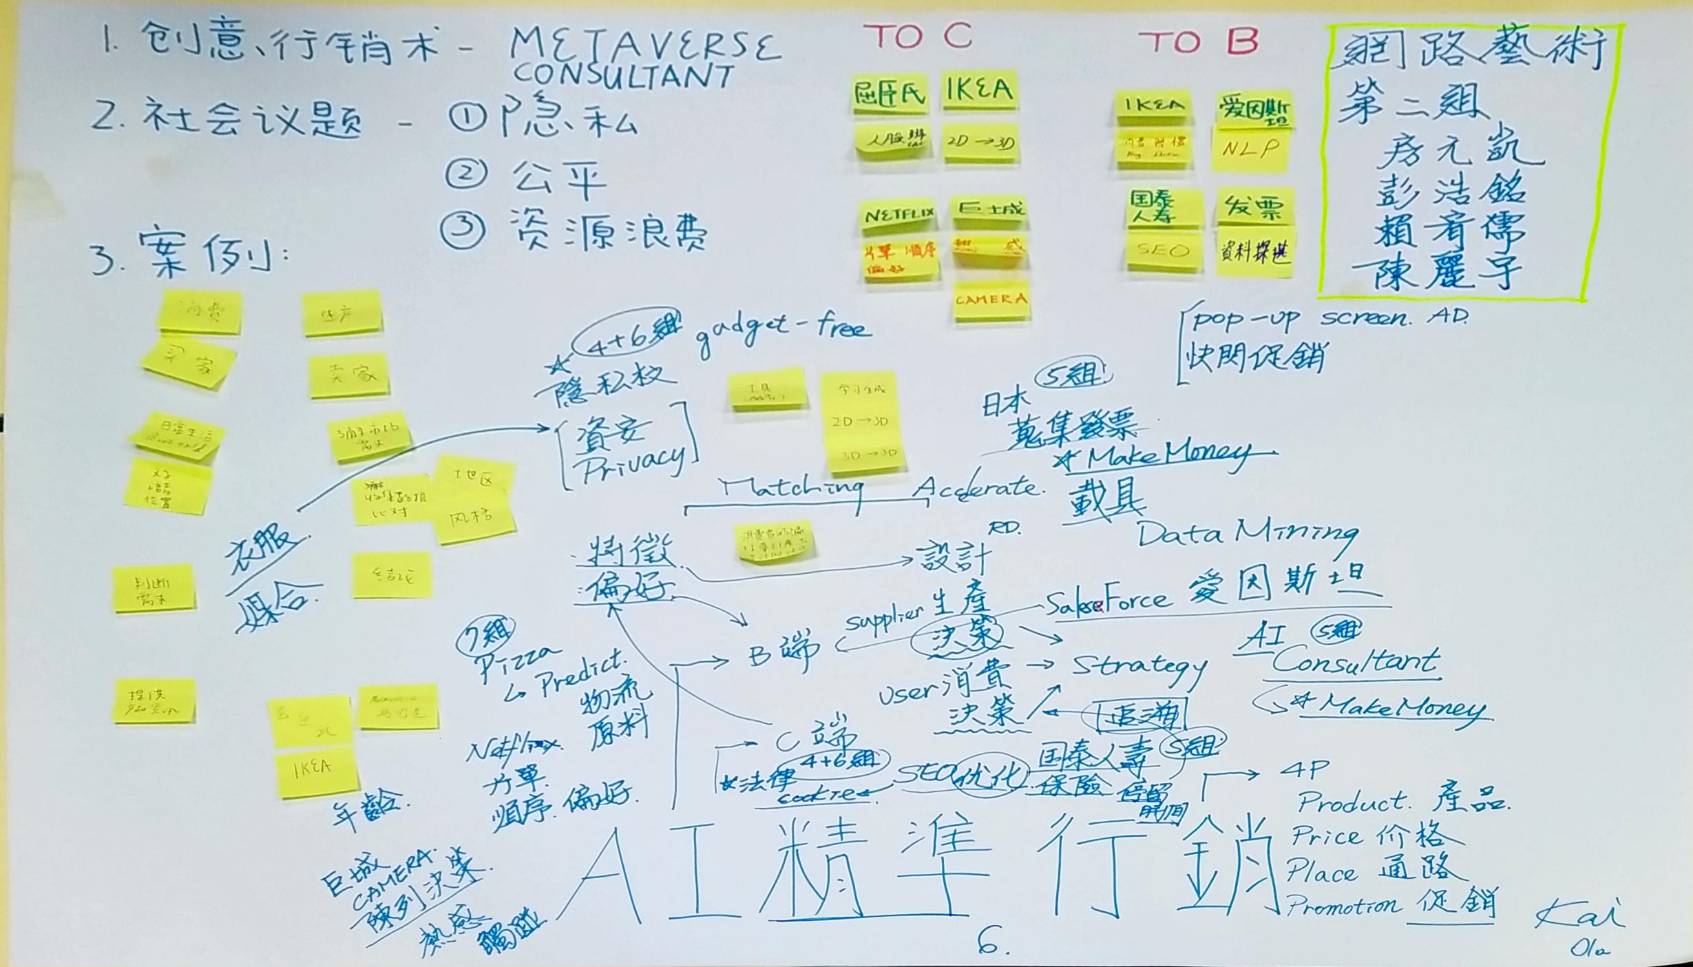 1. 创意、行销术 - METAVERSE
CONSULTANT
2. 社会议题 - ① 隐私
② 公平
③ 资源浪费
3. 案例:
TO C
屈臣氏
IKEA
2D→3D
NETFLIX
片單 順序
偏好
巨城
感
CAMERA
TO B
IKEA
爱因斯
坦
NLP
国泰
人寿
SEO
发票
資料探堪
網路藝術
第二組
房元凱
彭浩銘
賴育儒
陳麗宇
pop-up screen. AD.
快閃促銷
消费
生产
买家
卖家
日常生活
需求
文字
语音
位置
比对
地区
风格
判断
需求
IKEA
4+6組
gadget-free
隱私权
資安
Privacy
衣服
媒合
学习生成
2D→3D
3D→3D
Matching Accelerate.
5組
日本
蒐集發票
*Make Money
載具
Data Mining
特徵
偏好
RD.
設計
supplier 生產
決策
SalesForce 愛因斯坦
B端
user 消費
決策
Strategy
AI 5組
Consultant
*Make Money
追溯
7組
Pizza
Predict.
物流
原料
Netflix
片單
順序.偏好
C端
4+6組
*法律
cookie
SEO 优化
国泰人壽 5組
保險 停留
時間
4P
Product. 產品.
Price 价格
Place 通路
Promotion 促銷
年齡.
巨城
CAMERA.
陳列決策.
熱感
觸碰
AI精準行銷
6.
Kai
Ola